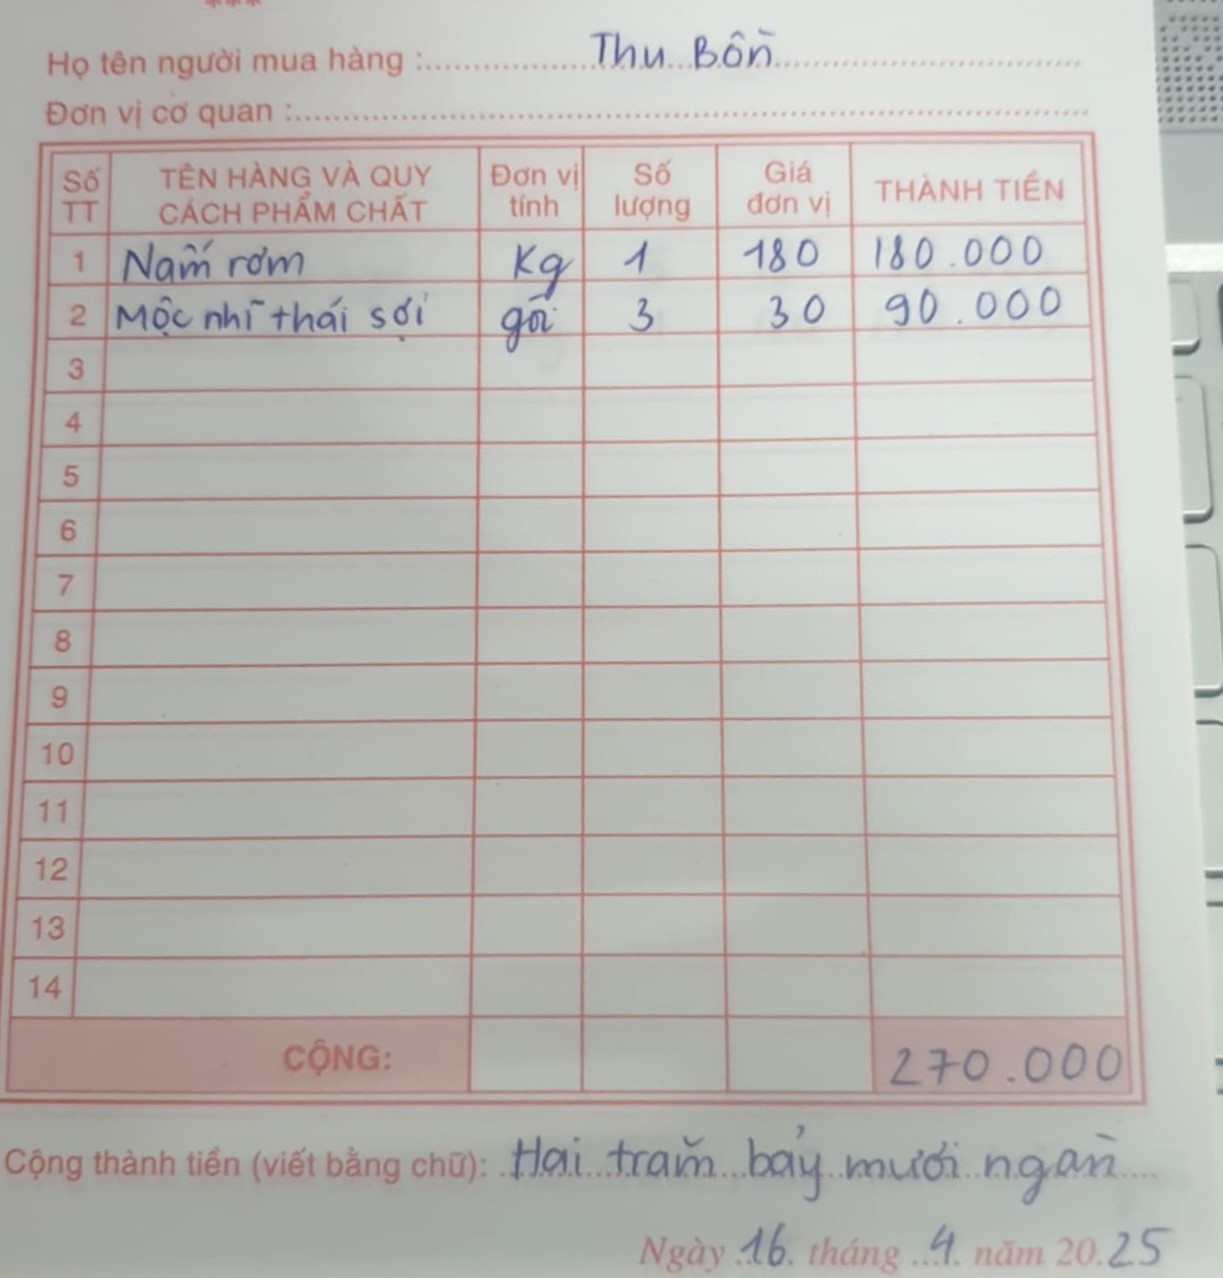 ***
Họ tên người mua hàng : Thu Bồn
Đơn vị cơ quan :
Số TT TÊN HÀNG VÀ QUY CÁCH PHẨM CHẤT Đơn vị tính Số lượng Giá đơn vị THÀNH TIỀN
1 Nấm rơm Kg 1 180 180.000
2 Mộc nhĩ thái sợi gói 3 30 90.000
3
4
5
6
7
8
9
10
11
12
13
14
CỘNG: 270.000
Cộng thành tiền (viết bằng chữ): Hai trăm bảy mươi ngàn
Ngày 16. tháng 4. năm 20.25